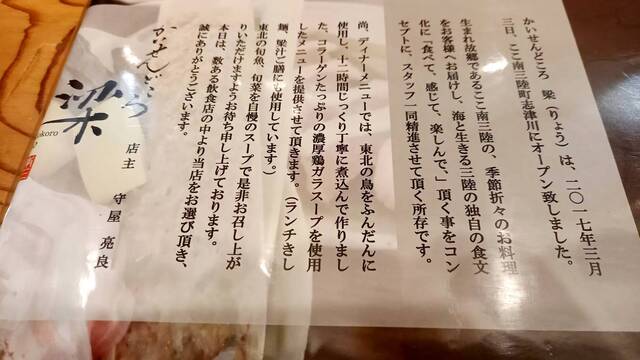 かいせんどころ 梁（りょう）は、二〇一七年三月
三日、ここ南三陸町志津川にオープン致しました。
生まれ故郷であるここ南三陸の、季節折々のお料理
をお客様へお届けし、海と生きる三陸の独自の食文
化に「食べて、感じて、楽しんで、」頂く事をコン
セプトに、スタッフ一同精進させて頂く所存です。
尚、ディナーメニューでは、東北の鳥をふんだんに
使用し、十二時間じっくり丁寧に煮込んで作りまし
た、コラーゲンたっぷりの濃厚鶏ガラスープを使用
したメニューを提供させて頂きます。（ランチきし
麺、梁汁ご膳にも使用しています。）
東北の旬魚、旬菜を自慢のスープで是非お召し上が
りいただけますようお待ち申し上げております。
本日は、数ある飲食店の中より当店をお選び頂き、
誠にありがとうございます。
かいせんどころ
梁
koro
店主 守屋 亮良